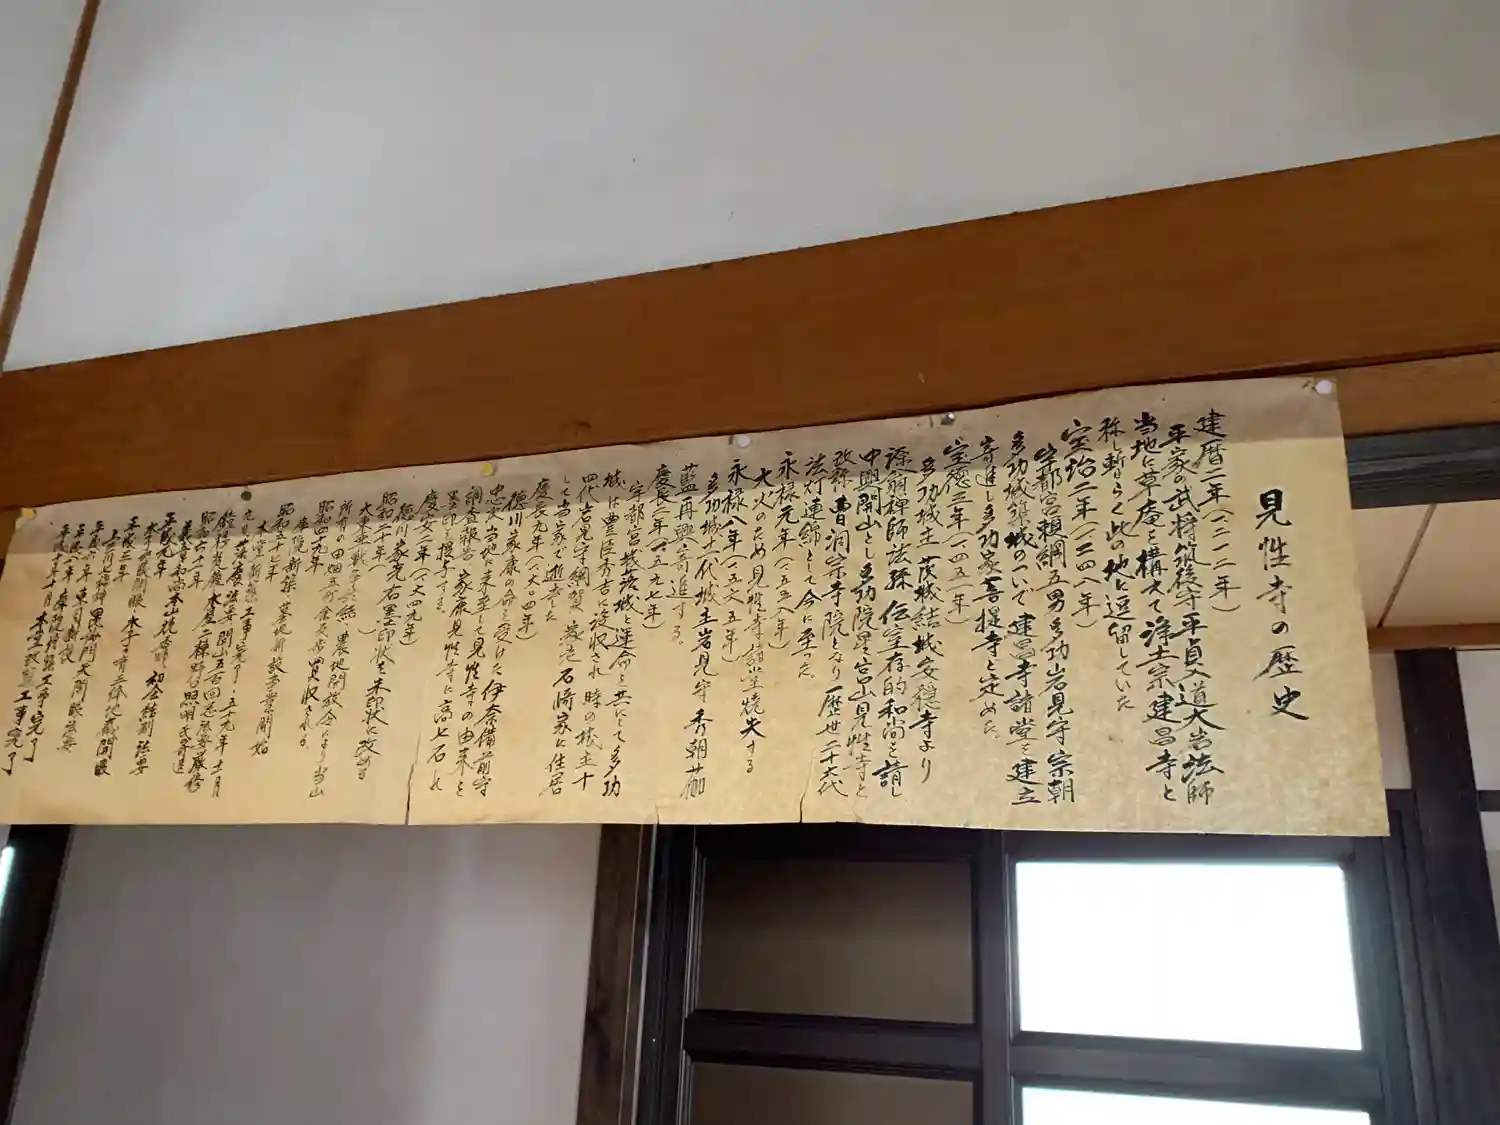 見性寺の歴史
建暦二年(一二一二年)
平家の武将筑後守平貞大道大岩法師
当地に草庵を構えて浄土宗建昌寺と
称し暫らく此の地に逗留していた
宝治二年(一二四八年)
宇都宮頼綱五男多功岩見守宗朝
多功城築城のついで建昌寺諸堂を建立
寄進し多功家菩提寺と定めた。
宝徳三年(一四五一年)
多功城主 茂城結城安穏寺より
源翁禅師法孫 伝室存的和尚を請し
中興開山とし多功院星宮山見性寺と
改称 曹洞宗寺院となり 歴世二十六代
法灯連綿として今に至った。
永禄元年(一五五八年)
大火のため見性寺諸堂焼失する
永禄八年(一五六五年)
多功城十一代城主岩見守 秀朝 茄
藍再興寄進する。
慶長二年(一五九七年)
宇都宮城落城と運命を共にして多功
城は豊臣秀吉に没収され 時の城主十
四代岩見守綱賀 家老 石崎家に住居
して当家で逝去した
慶長九年(一六〇四年)
徳川家康の命を受けた伊奈備前守
忠次当地に来至して見性寺の由来を
調査報告 家康 見性寺に高七石 れ
墨印を授与する。
慶安二年(一六四九年)
徳川家光石墨印状を朱印状に改める
昭和二十年
大東亜戦争終結 農地開放令により当山
所有の田畑 買収される。
昭和四九年
庫院新築 墓地新設 開始
昭和五十三年
本堂新築工事完了・五十九年十一月
開山五百回忌法要厳修
昭和六十二年
平成元年
平成三年
水子地蔵開眼 水子 地蔵開眼
毘沙門天開眼法要
本堂 工事完了